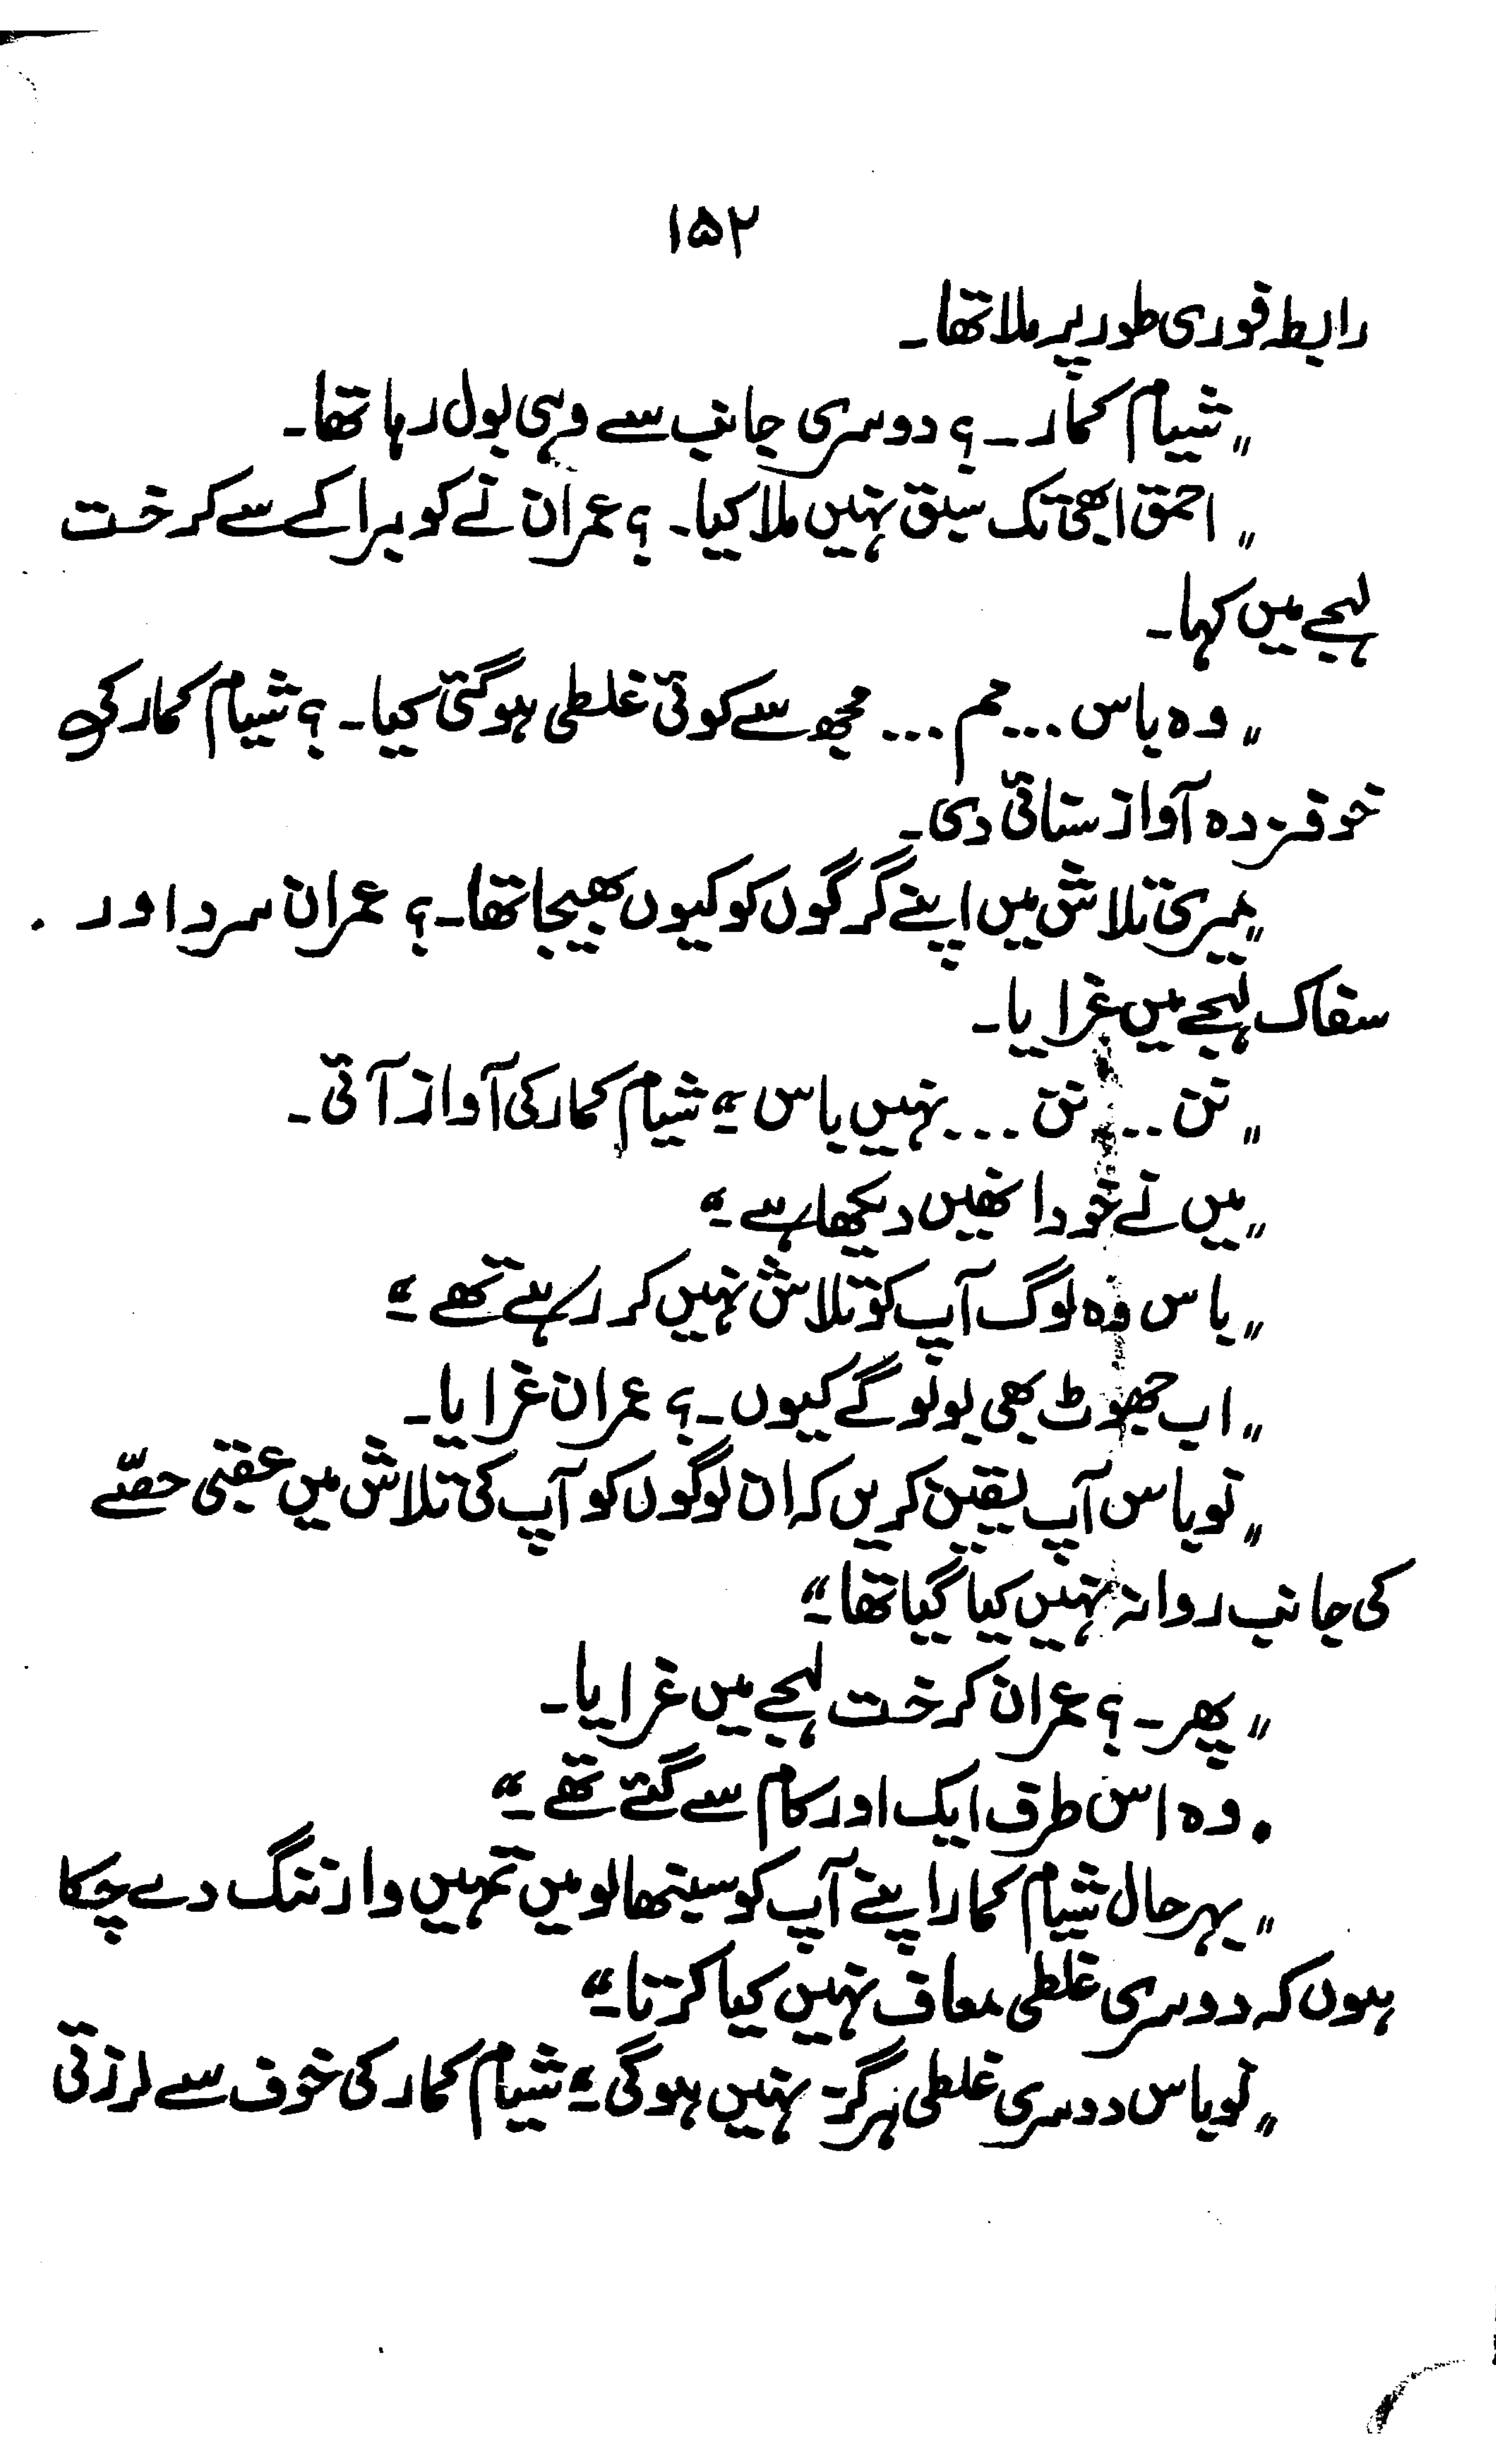 ۱۵۲
رابطہ فوری طور پر ملا تھا۔
"شیام کمار۔۔؟ دوسری جانب سے وہی بول رہا تھا۔
"احمق ابھی تک سبق نہیں ملا کیا۔؟ عمران نے کوبرا کے سے کرخت
لہجے میں کہا۔
"وہ باس...مم... مجھ سے کوئی غلطی ہو گئی کیا۔؟ شیام کمار کی
خوفزدہ آواز سنائی دی۔
"میری تلاش میں اپنے گرگوں کو کیوں بھیجا تھا۔؟ عمران سرد اور
سفاک لہجے میں غرایا۔
"نن...نن...نہیں باس۔" شیام کمار کی آواز آئی۔
"میں نے خود انھیں دیکھا ہے۔"
"باس وہ لوگ آپ کو تلاش نہیں کر رہے تھے۔"
"اب جھوٹ بھی بولو گے کیوں۔؟ عمران غرایا۔
"نو باس آپ یقین کریں کہ ان لوگوں کو آپ کی تلاش میں عقبی حصّے
کی جانب روانہ نہیں کیا گیا تھا۔"
"پھر۔؟ عمران کرخت لہجے میں غرایا۔
وہ اس طرف ایک اور کام سے گئے تھے۔"
"بہرحال شیام کمار اپنے آپ کو سنبھالو میں تمہیں وارننگ دے چکا
ہوں کہ دوسری غلطی معاف نہیں کیا کرتا۔"
"نو باس دوسری غلطی ہرگز نہیں ہو گی۔" شیام کمار کی خوف سے لرزتی